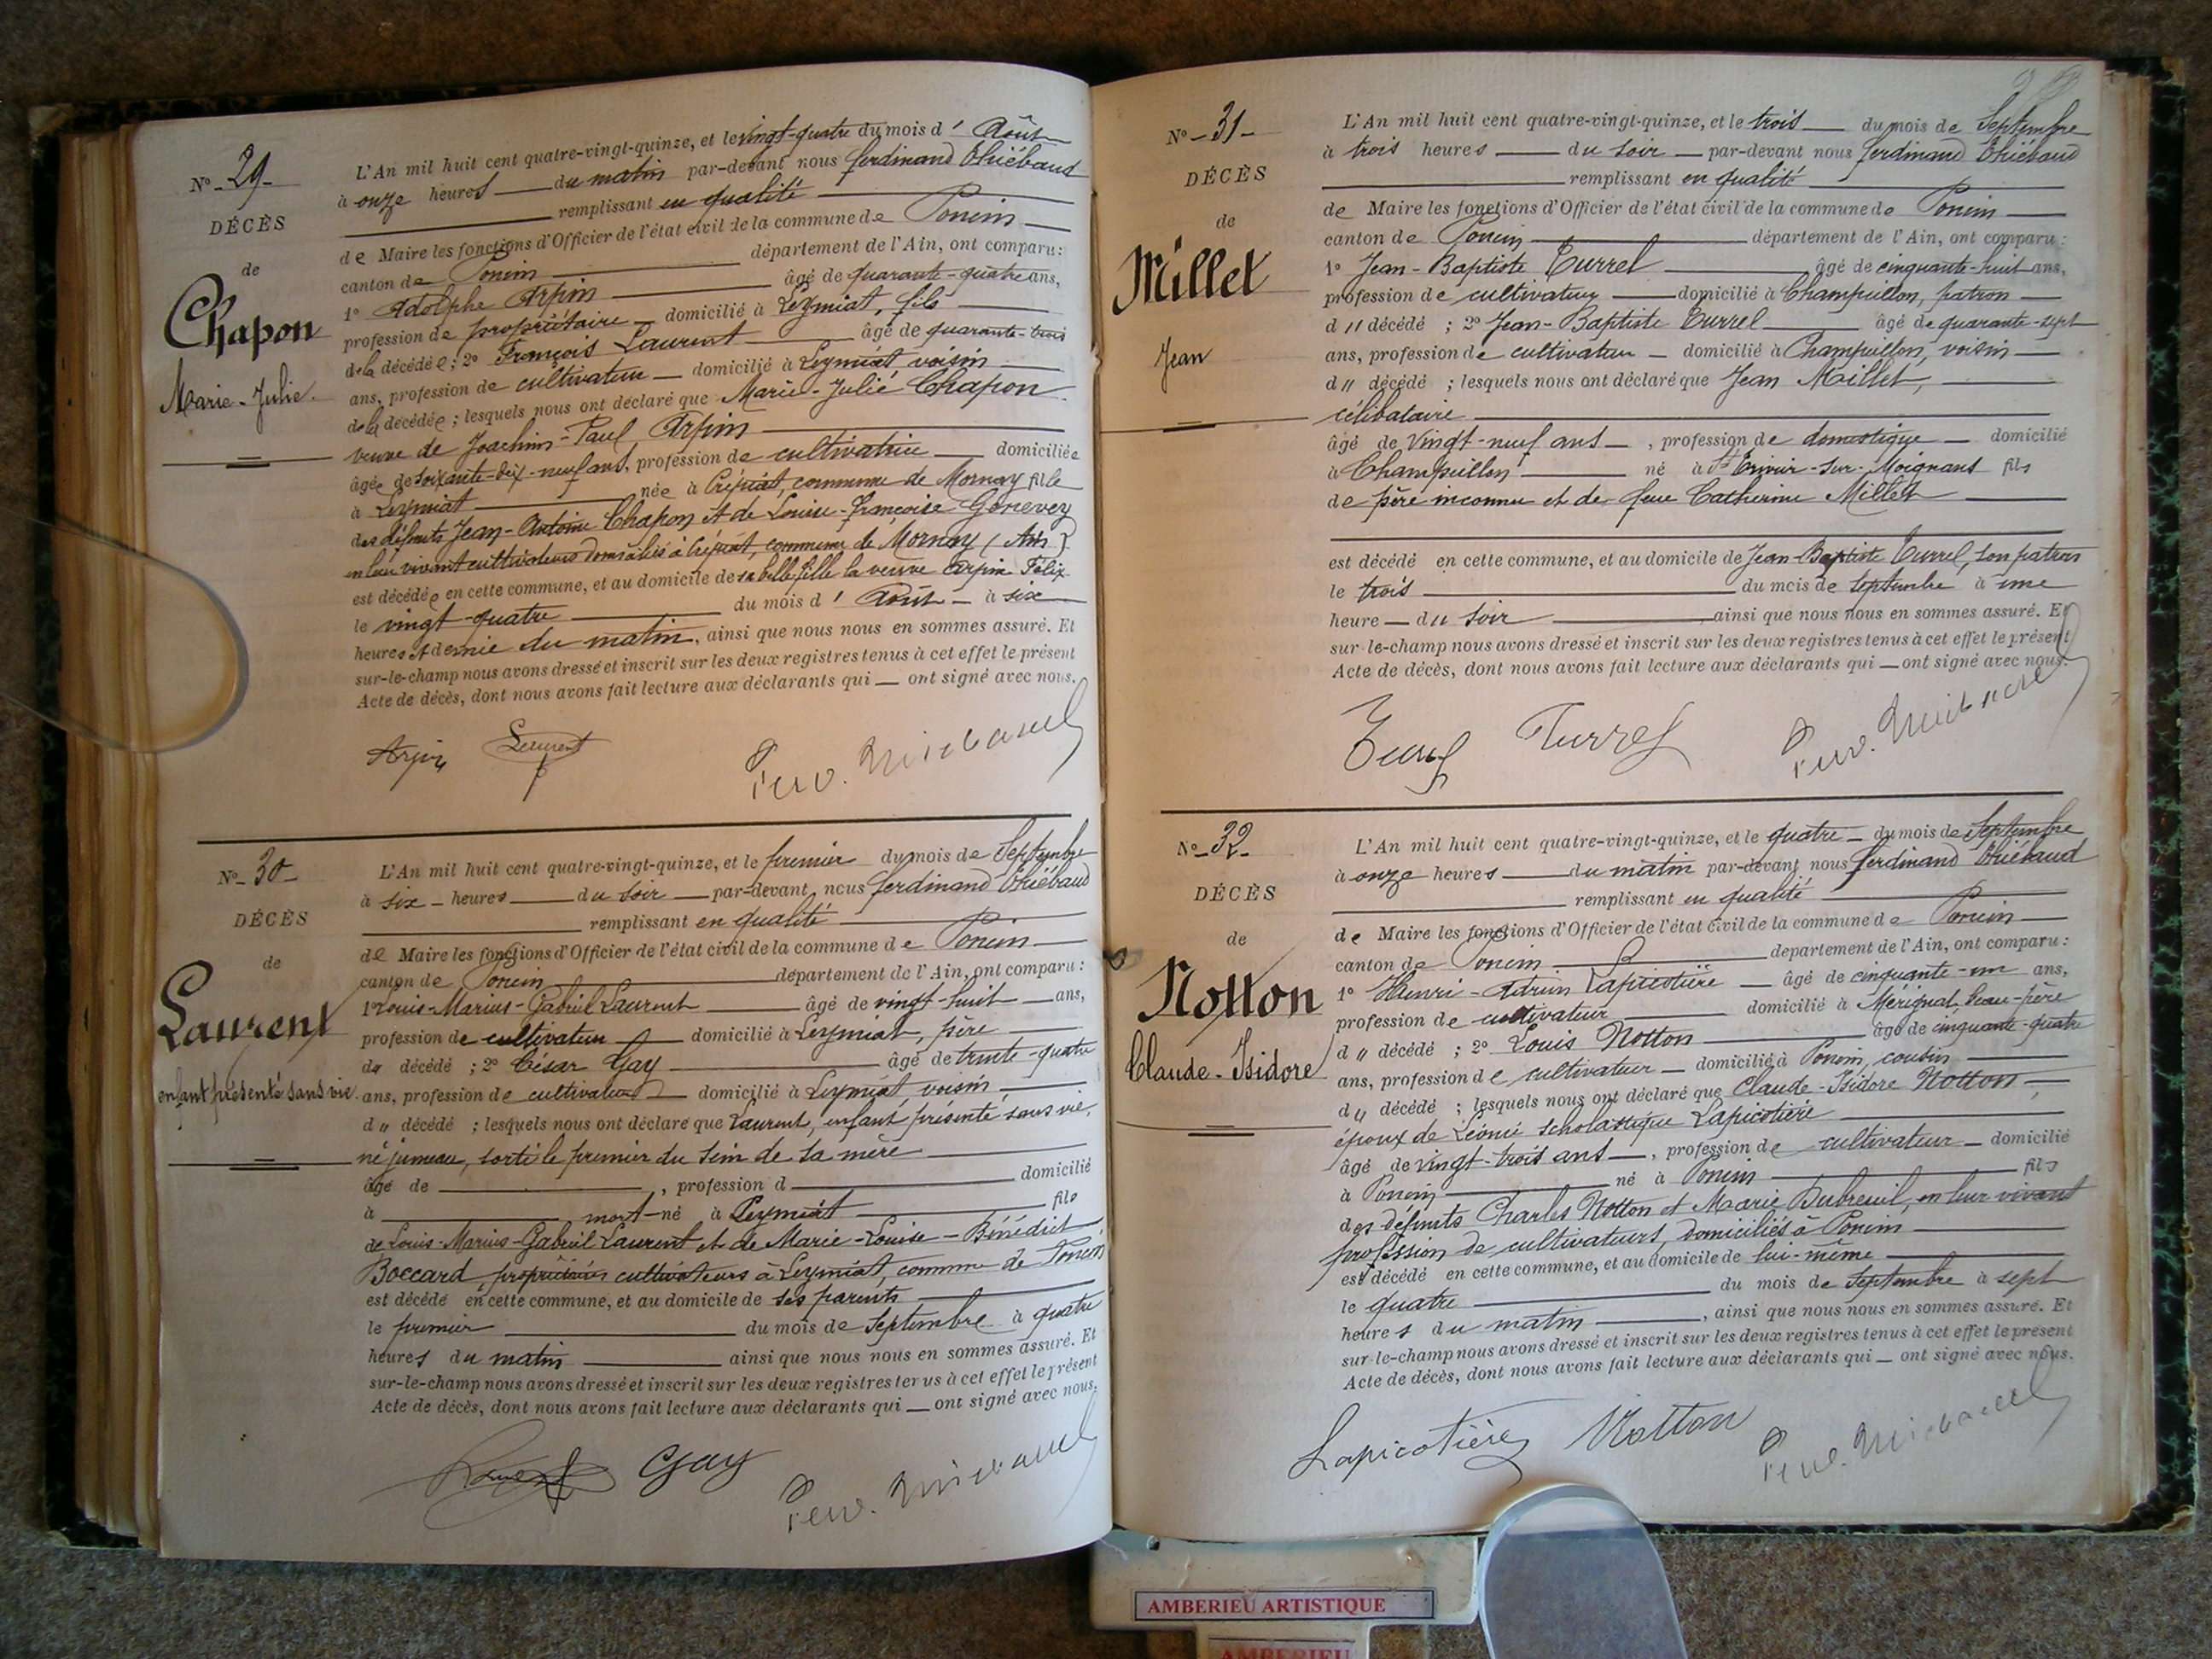 No 29
DÉCÈS
de
Chapon
Marie-Julie.
L'An mil huit cent quatre-vingt-quinze, et le vingt-quatre du mois d' Août
à onze heures du matin par-devant nous ferdinand Thiébaud
remplissant en qualité
de Maire les fonctions d'Officier de l'état civil de la commune de Poncin
canton de Poncin département de l'Ain, ont comparu:
1° Adolphe Arpin âgé de quarante-quatre ans,
profession de propriétaire domicilié à Leymiat, fils
de la décédée; 2° François Laurent âgé de quarante-trois
ans, profession de cultivateur domicilié à Leymiat, voisin
de la décédée; lesquels nous ont déclaré que Marie-Julie Chapon
veuve de Joachim-Paul Arpin
âgée de soixante-dix-neuf ans, profession de cultivatrice domiciliée
à Leymiat née à Crépiat, commune de Mornay fille
des défunts Jean-Antoine Chapon et de Louise-Françoise Genevey
en leur vivant cultivateurs domiciliés à Crépiat, commune de Mornay (Ain)
est décédée en cette commune, et au domicile de sa belle fille la veuve Arpin Félix
le vingt-quatre du mois d' Août à six
heures et demie du matin, ainsi que nous nous en sommes assuré. Et
sur-le-champ nous avons dressé et inscrit sur les deux registres tenus à cet effet le présent
Acte de décès, dont nous avons fait lecture aux déclarants qui ont signé avec nous.
Arpin Laurent
No 30
DÉCÈS
de
Laurent
enfant présenté sans vie.
L'An mil huit cent quatre-vingt-quinze, et le premier du mois de Septembre
à six heures du soir par-devant nous ferdinand Thiébaud
remplissant en qualité
de Maire les fonctions d'Officier de l'état civil de la commune de Poncin
canton de Poncin département de l'Ain, ont comparu:
1° Louis-Marius-Gabriel Laurent âgé de vingt-huit ans,
profession de cultivateur domicilié à Leymiat, père
du décédé; 2° César Gay âgé de trente-quatre
ans, profession de cultivateur domicilié à Leymiat, voisin
d" décédé; lesquels nous ont déclaré que Laurent, enfant présenté sans vie,
né jumeau, sorti le premier du sein de sa mère
âgé de , profession d domicilié
à mort-né à Leymiat fils
de Louis-Marius-Gabriel Laurent et de Marie-Louise-Bénédict
Boccard, propriétaires cultivateurs à Leymiat, commune de Poncin
est décédé en cette commune, et au domicile de ses parents
le premier du mois de Septembre à quatre
heures du matin ainsi que nous nous en sommes assuré. Et
sur-le-champ nous avons dressé et inscrit sur les deux registres tenus à cet effet le présent
Acte de décès, dont nous avons fait lecture aux déclarants qui ont signé avec nous.
Gay
No 31
DÉCÈS
de
Millet
Jean
L'An mil huit cent quatre-vingt-quinze, et le trois du mois de Septembre
à trois heures du soir par-devant nous ferdinand Thiébaud
remplissant en qualité
de Maire les fonctions d'Officier de l'état civil de la commune de Poncin
canton de Poncin département de l'Ain, ont comparu:
1° Jean-Baptiste Turrel âgé de cinquante-huit ans,
profession de cultivateur domicilié à Champeillon, patron
d" décédé; 2° Jean-Baptiste Turrel âgé de quarante-sept
ans, profession de cultivateur domicilié à Champeillon, voisin
d" décédé; lesquels nous ont déclaré que Jean Millet,
célibataire
âgé de vingt-neuf ans, profession de domestique domicilié
à Champeillon né à St Trivier-sur-Moignans fils
de père inconnu et de feue Catherine Millet
est décédé en cette commune, et au domicile de Jean-Baptiste Turrel, son patron
le trois du mois de Septembre à une
heure du soir ainsi que nous nous en sommes assuré. Et
sur-le-champ nous avons dressé et inscrit sur les deux registres tenus à cet effet le présent
Acte de décès, dont nous avons fait lecture aux déclarants qui ont signé avec nous.
Turrel Turrel
No 32
DÉCÈS
de
Notton
Claude-Isidore
L'An mil huit cent quatre-vingt-quinze, et le quatre du mois de Septembre
à onze heures du matin par-devant nous ferdinand Thiébaud
remplissant en qualité
de Maire les fonctions d'Officier de l'état civil de la commune de Poncin
canton de Poncin département de l'Ain, ont comparu:
1° Henri-Adrien Lapicotière âgé de cinquante-un ans,
profession de cultivateur domicilié à Mérignat beau-père
d" décédé; 2° Louis Notton âgé de cinquante-quatre
ans, profession de cultivateur domicilié à Poncin, cousin
du décédé; lesquels nous ont déclaré que Claude-Isidore Notton,
époux de Léonie Scholastique Lapicotière
âgé de vingt-trois ans, profession de cultivateur domicilié
à Poncin né à Poncin fils
des défunts Charles Notton et Marie Dubreuil, en leur vivant
profession de cultivateurs, domiciliés à Poncin
est décédé en cette commune, et au domicile de lui-même
le quatre du mois de Septembre à sept
heures du matin, ainsi que nous nous en sommes assuré. Et
sur-le-champ nous avons dressé et inscrit sur les deux registres tenus à cet effet le présent
Acte de décès, dont nous avons fait lecture aux déclarants qui ont signé avec nous.
Lapicotière Notton
AMBERIEU ARTISTIQUE
AMBERIEU